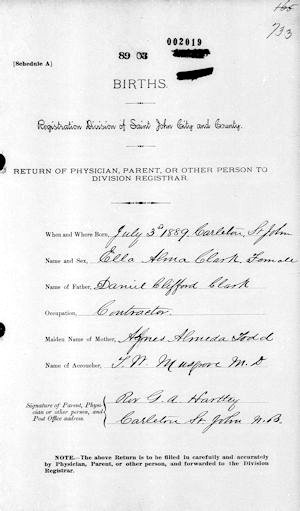 165
733
002019
8903
[Schedule A]
BIRTHS.
Registration Division of Saint John City and County.
RETURN OF PHYSICIAN, PARENT, OR OTHER PERSON TO
DIVISION REGISTRAR.
When and Where Born, July 3d 1889, Carleton, St John
Name and Sex, Ella Alma Clark, Female
Name of Father, Daniel Clifford Clark
Occupation, Contractor.
Maiden Name of Mother, Agnes Almeda Todd
Name of Accoucher, M.D
Signature of Parent, Physician or other person, and Post Office address.
Rev G. A. Hartley
Carleton St John N.B.
NOTE.—The above Return is to be filled in carefully and accurately
by Physician, Parent, or other person, and forwarded to the Division
Registrar.